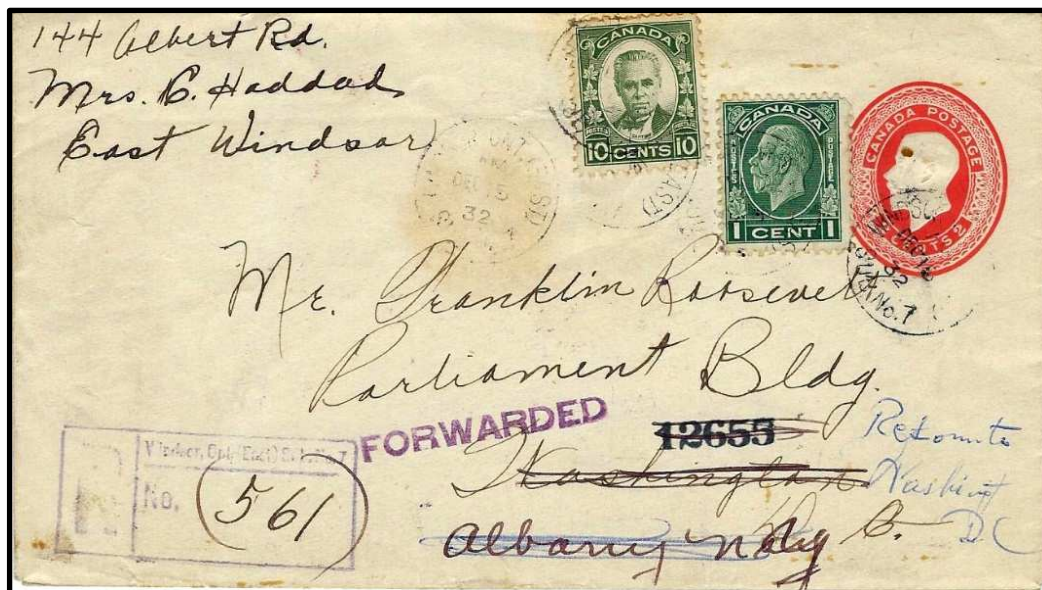 144 Albert Rd.
Mrs. C. Haddad
East Windsor
CANADA
10 CENTS 10
CANADA
POSTES POSTAGE
1 CENT 1
CANADA POSTAGE
2 CENTS 2
DEC 15
32
DEC 15
32
No. 7
Mr. Franklin Roosevelt
Parliament Bldg.
FORWARDED
12655
Washington
D. C.
Albany N.Y.
Washingt
DC
Windsor, Ont. (East) Sub. No. 7
No. 561